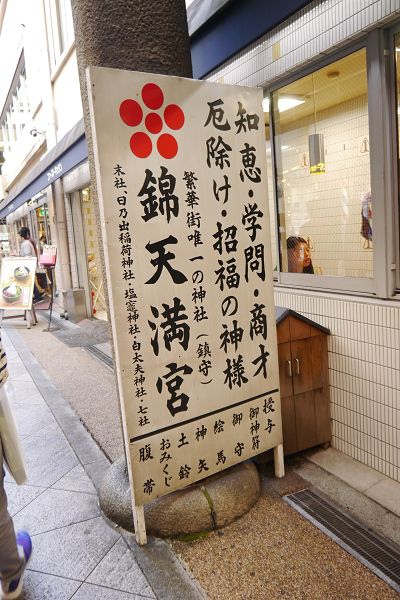 知恵・学問・商才
厄除け・招福の神様
繁華街唯一の神社（鎮守）
錦天満宮
末社 日乃出稲荷神社・塩竈神社・白太夫神社・七社
授与
御神符
御守
絵馬
神矢
土鈴
おみくじ
腹帯